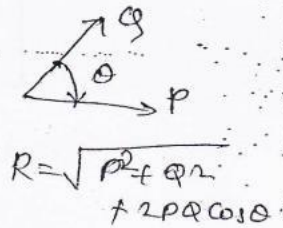 Q
θ
P
R = √P² + Q2
+ 2PQ Cosθ